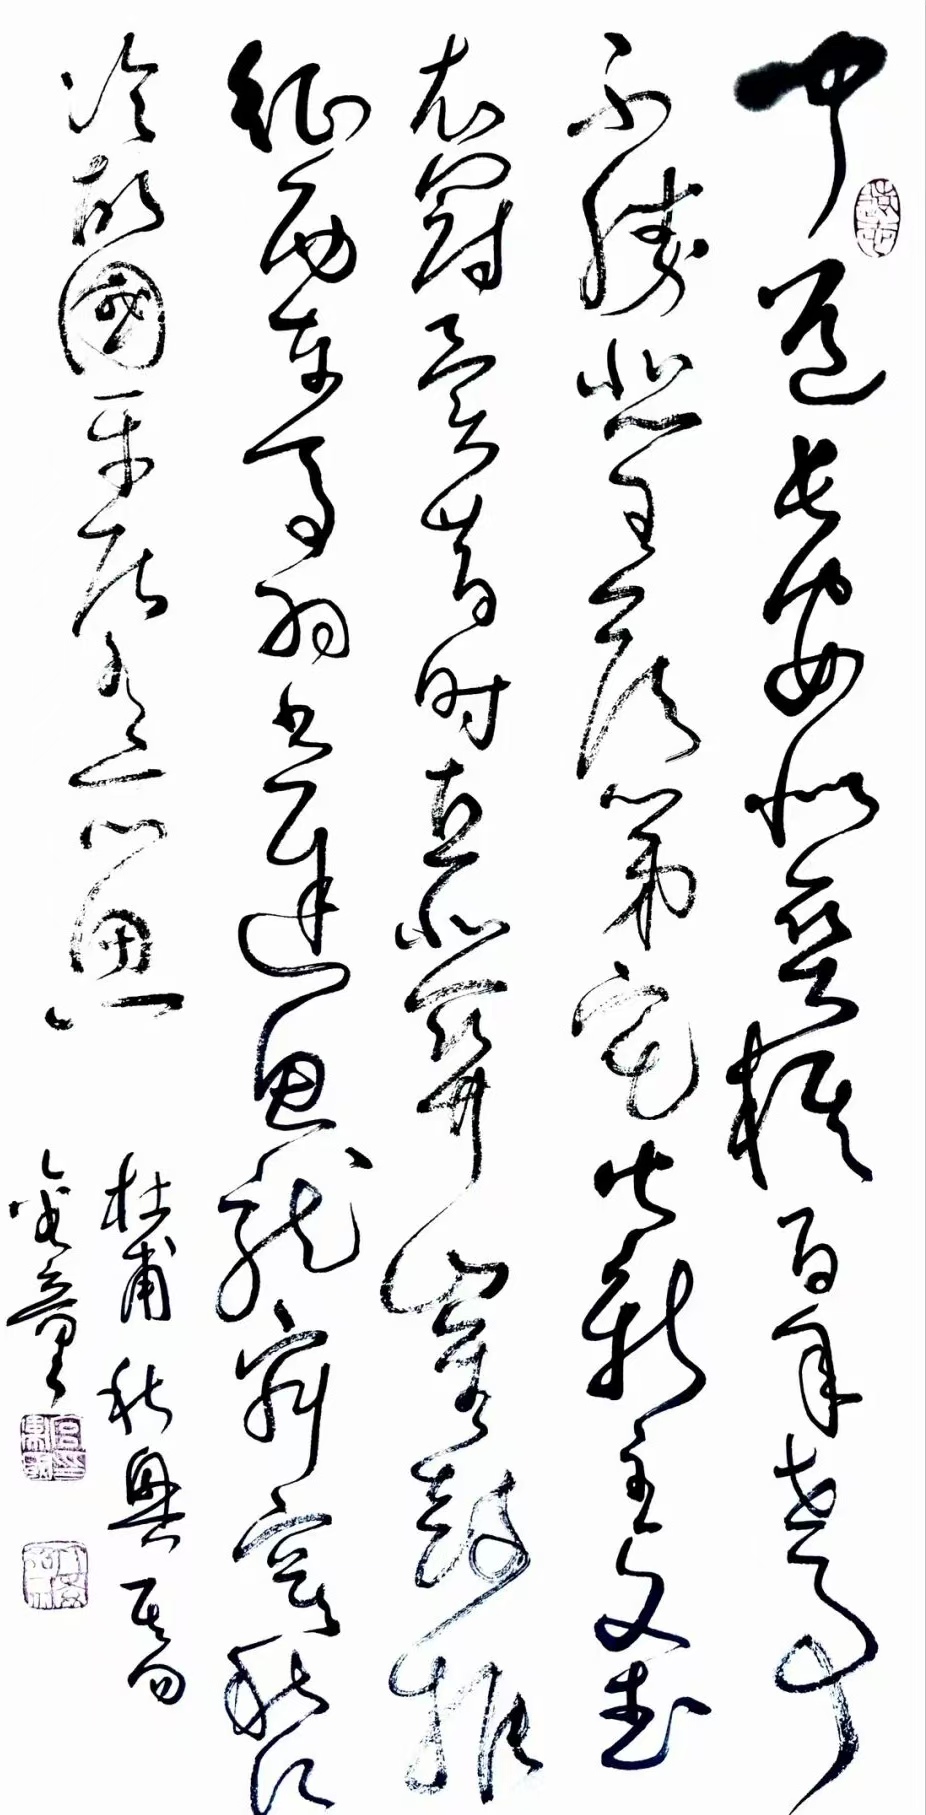 聞道長安似弈棋百年世事
不勝悲王侯第宅皆新主文武
衣冠異昔时直北關山金鼓振
征西車馬羽書遲魚龍寂寞秋江
冷故國平居有所思
杜甫秋興其四